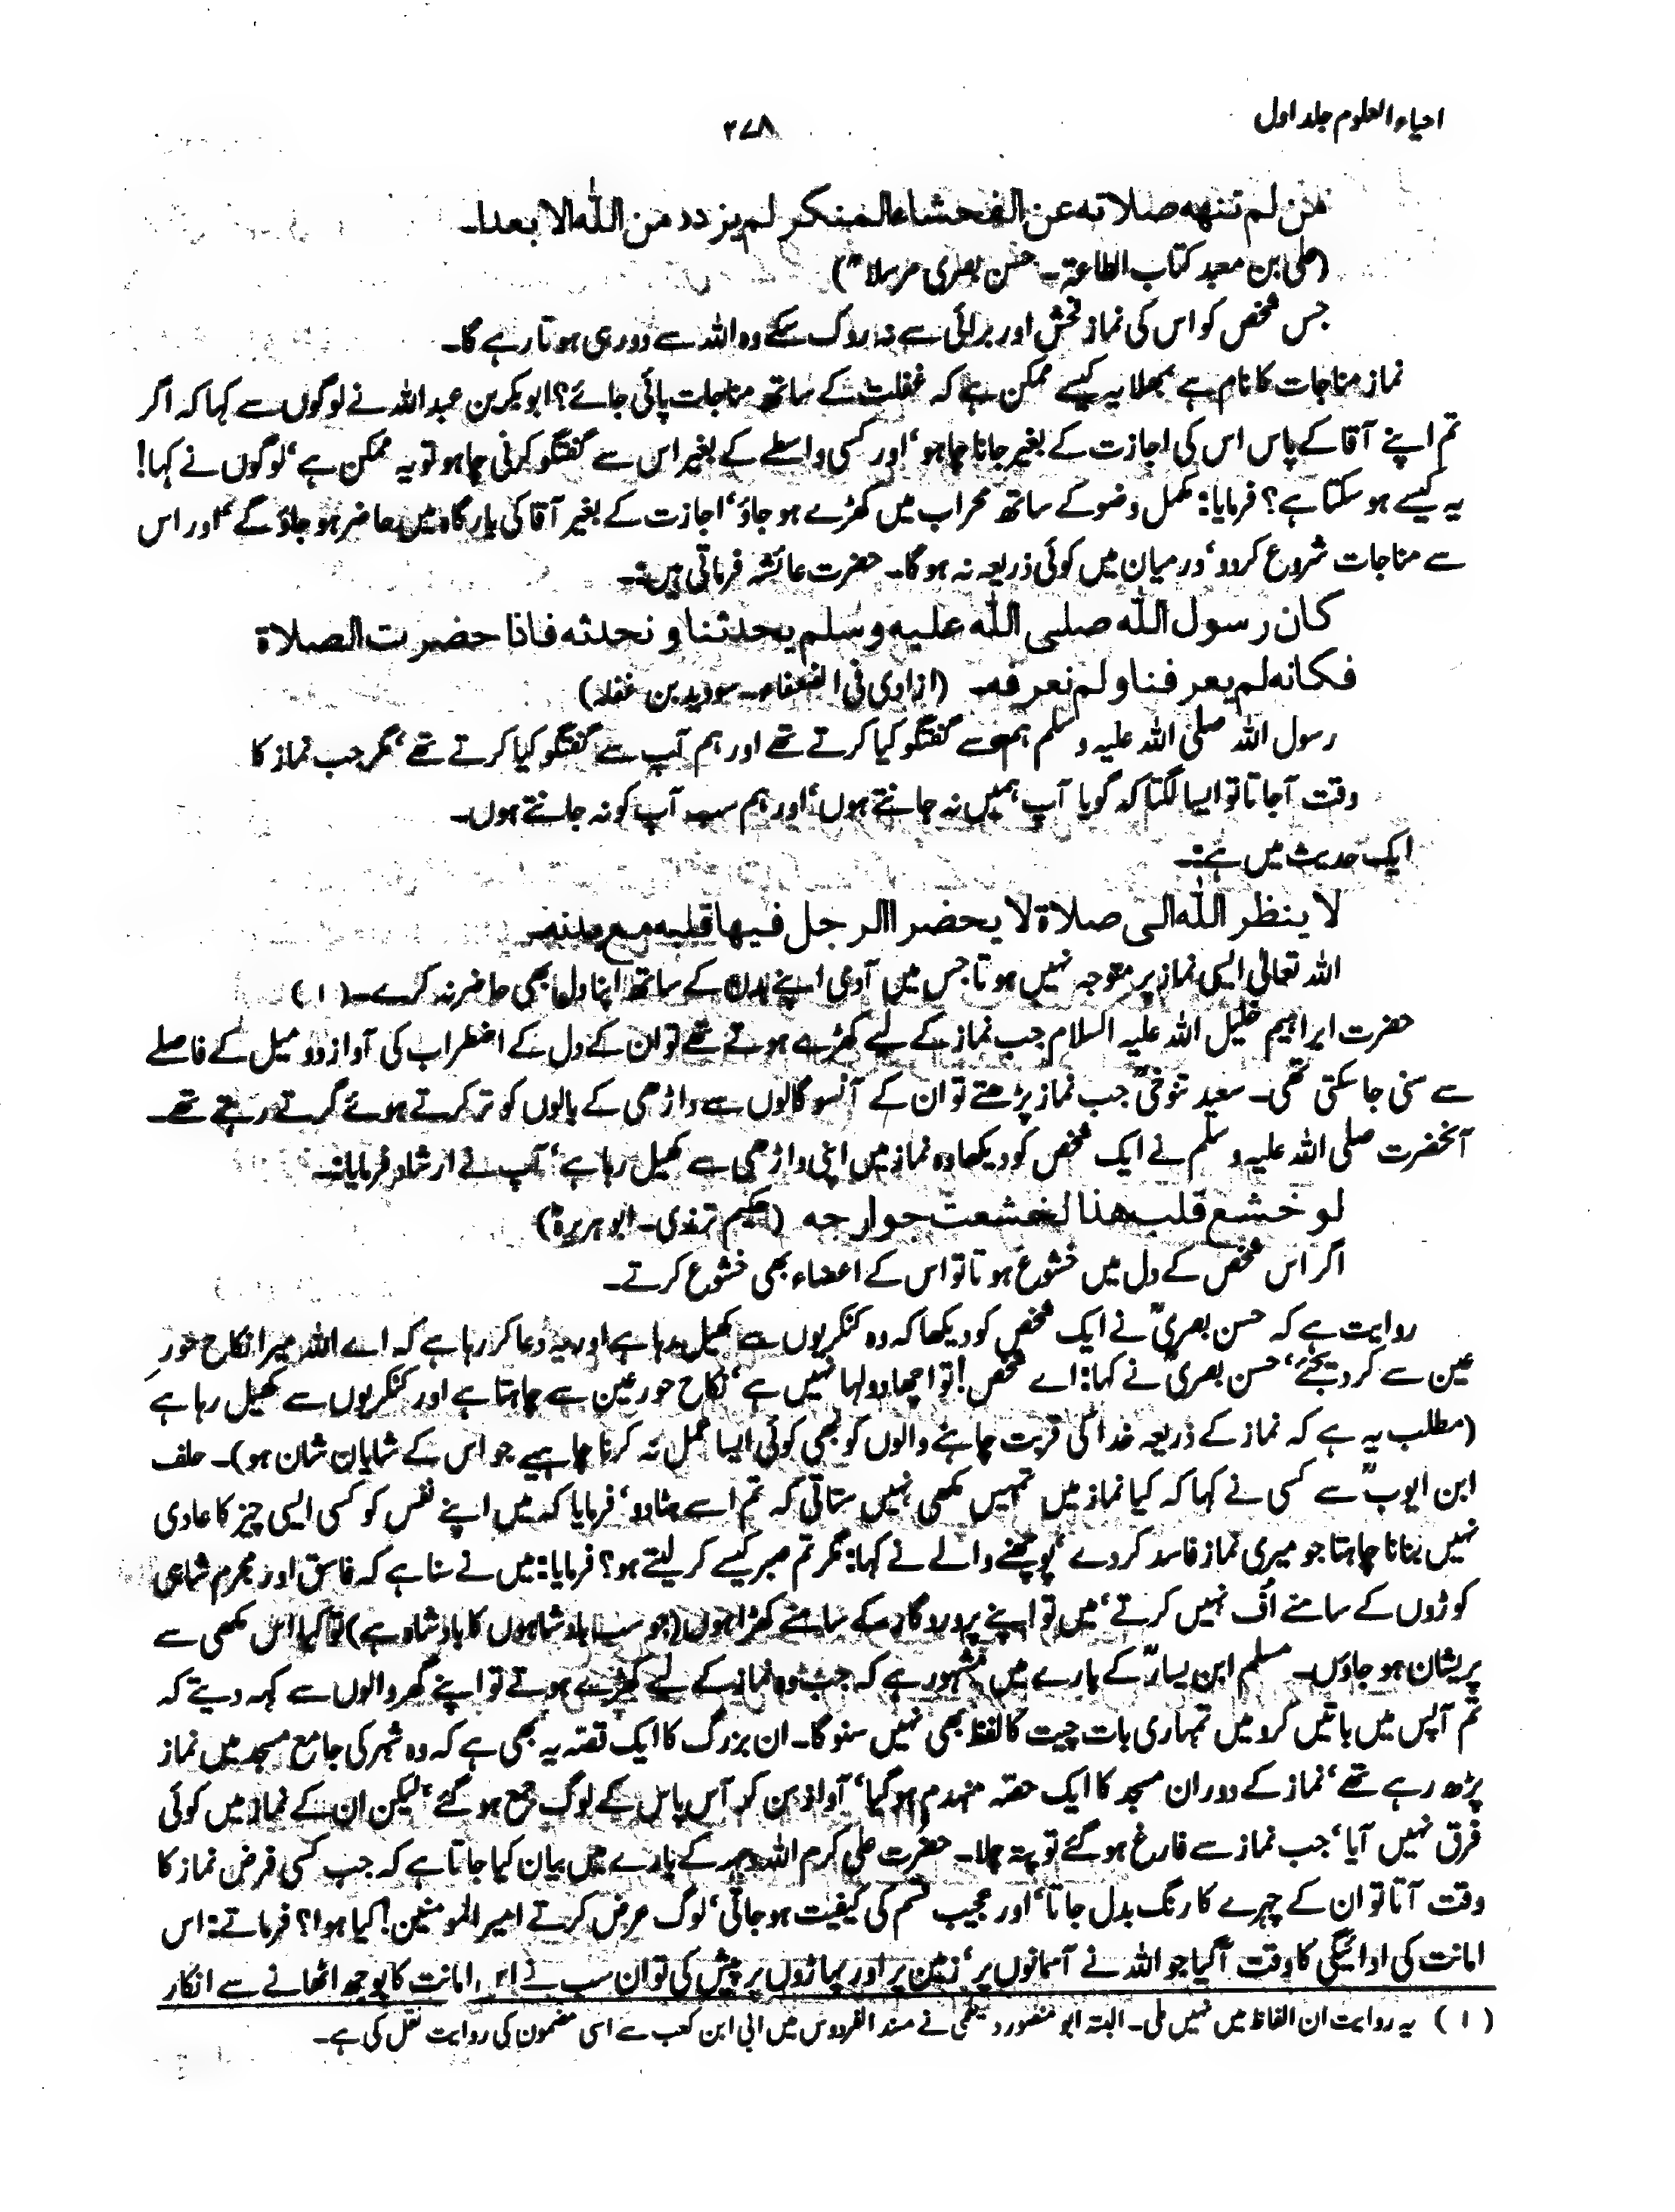 احیاء العلوم جلد اول
۲۷۸
من لم تنهه صلاته عن الفحشاء المنكر لم يزدد من الله الا بعدا۔
(علی بن معبد کتاب الطاعۃ۔ حسن بصری مرسلاً)
جس شخص کو اس کی نماز فحش اور برائی سے نہ روک سکے وہ اللہ سے دور ہی ہوتا رہے گا۔
نماز مناجات کا نام ہے بھلا یہ کیسے ممکن ہے کہ غفلت کے ساتھ مناجات پائی جائے؟ ابوبکر بن عبداللہ نے لوگوں سے کہا کہ اگر
تم اپنے آقا کے پاس اس کی اجازت کے بغیر جانا چاہو، اور کسی واسطے کے بغیر اس سے گفتگو کرنی چاہو تو یہ ممکن ہے، لوگوں نے کہا!
یہ کیسے ہو سکتا ہے؟ فرمایا: مکمل وضو کے ساتھ محراب میں کھڑے ہو جاؤ، اجازت کے بغیر آقا کی بارگاہ میں حاضر ہو جاؤ گے، اور اس
سے مناجات شروع کردو، درمیان میں کوئی ذریعہ نہ ہوگا۔ حضرت عائشہ فرماتی ہیں:۔
كان رسول الله صلى الله عليه وسلم يحدثنا و نحدثه فاذا حضرت الصلاة
فكانه لم يعرفنا ولم نعرفه۔ (ازدی فی الضعفاء۔ سوید بن غفلہ)
رسول اللہ صلی اللہ علیہ وسلم ہم سے گفتگو کیا کرتے تھے اور ہم آپ سے گفتگو کیا کرتے تھے، مگر جب نماز کا
وقت آجاتا تو ایسا لگتا کہ گویا آپ ہمیں نہ جانتے ہوں، اور ہم سب آپ کو نہ جانتے ہوں۔
ایک حدیث میں ہے:۔
لا ينظر الله الى صلاة لا يحضر االرجل فيها قلبه مع بدنه۔
اللہ تعالیٰ ایسی نماز پر متوجہ نہیں ہوتا جس میں آدمی اپنے بدن کے ساتھ اپنا دل بھی حاضر نہ کرے۔ (۱)
حضرت ابراہیم خلیل اللہ علیہ السلام جب نماز کے لیے کھڑے ہوتے تھے تو ان کے دل کے اضطراب کی آواز دو میل کے فاصلے
سے سنی جاسکتی تھی۔ سعید تنوخیؒ جب نماز پڑھتے تو ان کے آنسو گالوں سے داڑھی کے بالوں کو تر کرتے ہوئے گرتے رہتے تھے۔
آنحضرت صلی اللہ علیہ وسلم نے ایک شخص کو دیکھا وہ نماز میں اپنی داڑھی سے کھیل رہا ہے، آپ نے ارشاد فرمایا:۔
لو خشع قلب هذا لخشعت جوارجه (حکیم ترمذی۔ ابو ہریرہؓ)
اگر اس شخص کے دل میں خشوع ہوتا تو اس کے اعضاء بھی خشوع کرتے۔
روایت ہے کہ حسن بصریؒ نے ایک شخص کو دیکھا کہ وہ کنکریوں سے کھیل رہا ہے اور یہ دعا کر رہا ہے کہ اے اللہ میرا نکاح حورِ
عین سے کردیجئے، حسن بصریؒ نے کہا: اے شخص! تو اچھا دولہا نہیں ہے، نکاح حور عین سے چاہتا ہے اور کنکریوں سے کھیل رہا ہے
(مطلب یہ ہے کہ نماز کے ذریعہ خدا کی قربت چاہنے والوں کو بھی کوئی ایسا عمل نہ کرنا چاہیے جو اس کے شایان شان ہو)۔ حلف
ابن ایوبؒ سے کسی نے کہا کہ کیا نماز میں تمہیں مکھی نہیں ستاتی کہ تم اسے ہٹادو، فرمایا کہ میں اپنے نفس کو کسی ایسی چیز کا عادی
نہیں بنانا چاہتا جو میری نماز فاسد کردے، پوچھنے والے نے کہا: مگر تم صبر کیسے کر لیتے ہو؟ فرمایا: میں نے سنا ہے کہ فاسق اور مجرم شاہی
کوڑوں کے سامنے اُف نہیں کرتے، میں تو اپنے پروردگار کے سامنے کھڑا ہوں (جو سب بادشاہوں کا بادشاہ ہے) تو کیا اس مکھی سے
پریشان ہو جاؤں۔ مسلم ابن یسارؒ کے بارے میں مشہور ہے کہ جب وہ نماز کے لیے کھڑے ہوتے تو اپنے گھر والوں سے کہہ دیتے کہ
تم آپس میں باتیں کرو میں تمہاری بات چیت کا لفظ بھی نہیں سنوگا۔ ان بزرگ کا ایک قصّہ یہ بھی ہے کہ وہ شہر کی جامع مسجد میں نماز
پڑھ رہے تھے، نماز کے دوران مسجد کا ایک حصّہ منہدم ہوگیا، آواز سن کر آس پاس کے لوگ جمع ہوگئے، لیکن ان کے نماز میں کوئی
فرق نہیں آیا، جب نماز سے فارغ ہوگئے تو پتہ چلا۔ حضرت علی کرم اللہ وجہہ کے بارے میں بیان کیا جاتا ہے کہ جب کسی فرض نماز کا
وقت آتا تو ان کے چہرے کا رنگ بدل جاتا، اور عجیب قسم کی کیفیت ہوجاتی، لوگ عرض کرتے امیر المومنین! کیا ہوا؟ فرماتے: اس
امانت کی ادائیگی کا وقت آگیا جو اللہ نے آسمانوں پر، زمین پر اور پہاڑوں پر پیش کی تو ان سب نے اس امانت کا بوجھ اٹھانے سے انکار
(۱) یہ روایت ان الفاظ میں نہیں ملی۔ البتہ ابو منصور دیلمی نے مسند الفردوس میں ابی ابن کعب سے اسی مضمون کی روایت نقل کی ہے۔